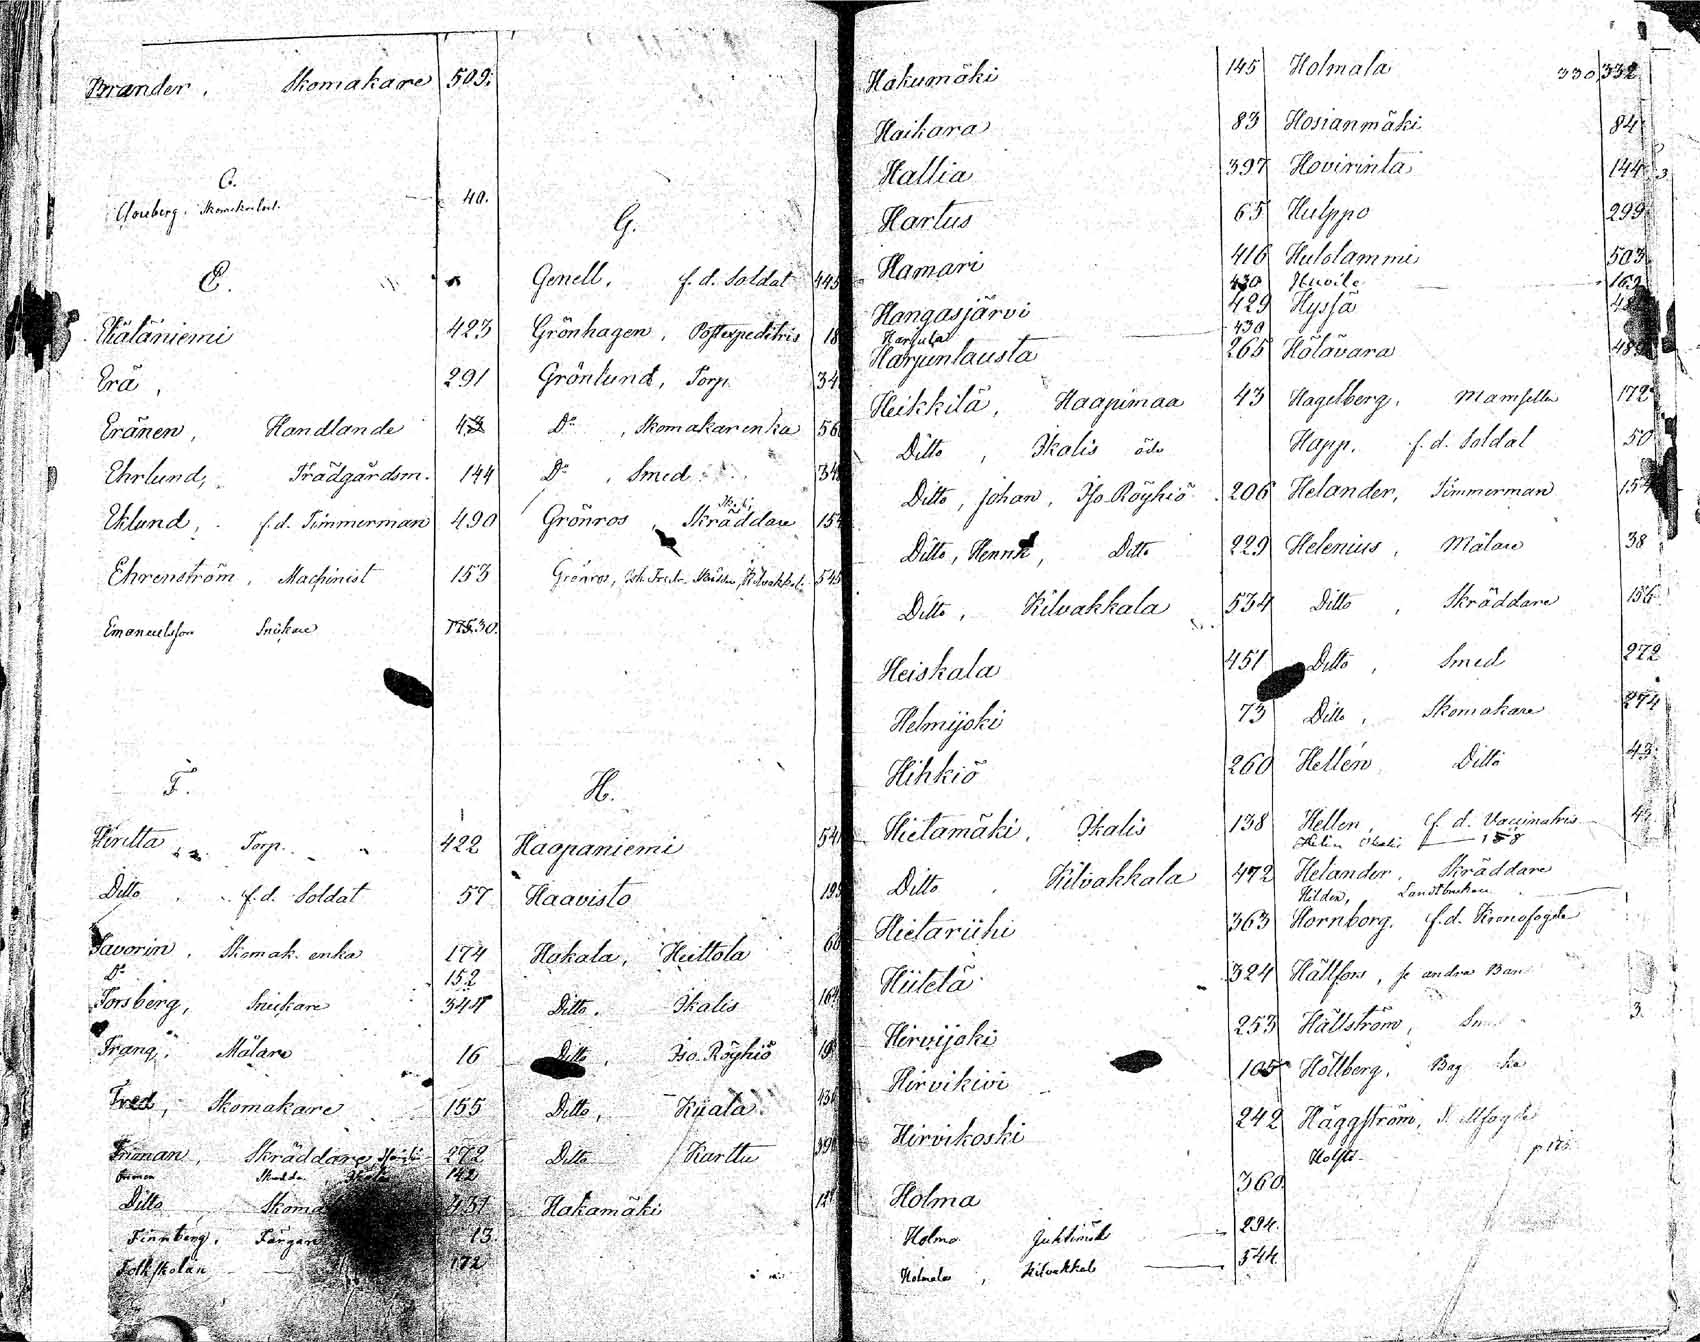 Brander, Skomakare 509.
C.
Skomakarlärl. 40.
E.
Ekäläniemi 423
Erä, 291
Eränen, Handlande 43
Ehrlund, Trädgårdsm. 144
Eklund, f.d. Timmerman 490
Ehrenström, Machinist 153
Emanuelsson Snickare 30.
F.
Firilla Torp. 422
Ditto f.d. Soldat 57
Favorin, Skomak. enka 174
Do 152
Forsberg, Snickare 344
Frang, Målare 16
Fred, Skomakare 155
Friman, Skräddare 272
142
Ditto 431
Finnberg, Färgare 13.
Folkskolan 172
G.
Genell, f.d. Soldat 445
Grönhagen, Postexpeditris 18
Grönlund, Torp. 34
Do, Skomakarenka 56
Do, Smed 34
Grönros, Skräddare 15
Grönros, Kilvakkala 545
H.
Haapaniemi 541
Haavisto 193
Hakala, Heittola 66
Ditto, Ikalis 164
Ditto, Iso-Röyhiö 19
Ditto, Kiiala 436
Ditto Karttu 39
Hakamäki 12
Hakumäki 145
Haikara 83
Hallia 397
Hartus 65
Hamari 416
430
Hangasjärvi 429
Harjula 430
Harjunlausta 265
Heikkilä, Haapimaa 43
Ditto, Ikalis öde
Ditto, Johan, Iso Röyhiö 206
Ditto, Henrik, Ditto 229
Ditto, Kilvakkala 534
Heiskala 451
Helmijoki 73
Hihkiö 260
Hietamäki, Ikalis 138
Ditto, Kilvakkala 472
Hietariihi 363
Hiitelä 324
Hirvijoki 253
Hirvikivi 105
Hirvikoski 242
Holma 360
Holma 294.
Holmala, Kilvakkala 544.
Holmala 330, 332
Hosianmäki 84
Hovirinta 144
Hulppo 299
Hulolammi 503
Huvila 162
Hyssä
Hölövara 489
Hagelberg, Mamsell 172
Happ, f.d. Soldat 50
Helander, Timmerman 154
Helenius, Målare 38
Ditto, Skräddare 156
Ditto, Smed 272
Ditto, Skomakare 274
Hellén Ditto 43.
Hellen, f.d. Vaccinatris
158
Helander, Skräddare
Hilden, Landtbrukare
Hornborg, f.d. Kronofogde
Hällfors, se andra Ban
Hällström, Smed 3.
Höllberg,
Häggström,
p 175.